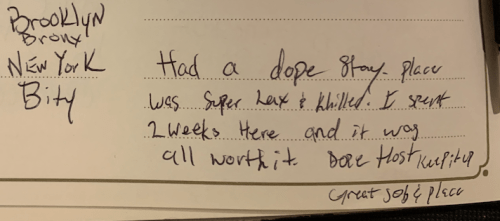 BrooklyN
Bronx
NEW York
Bity
Had a dope stay. place
was super Lax & khilled. I spent
2 weeks Here and it was
all worth it Dope Host Keep it up
Great Job & place